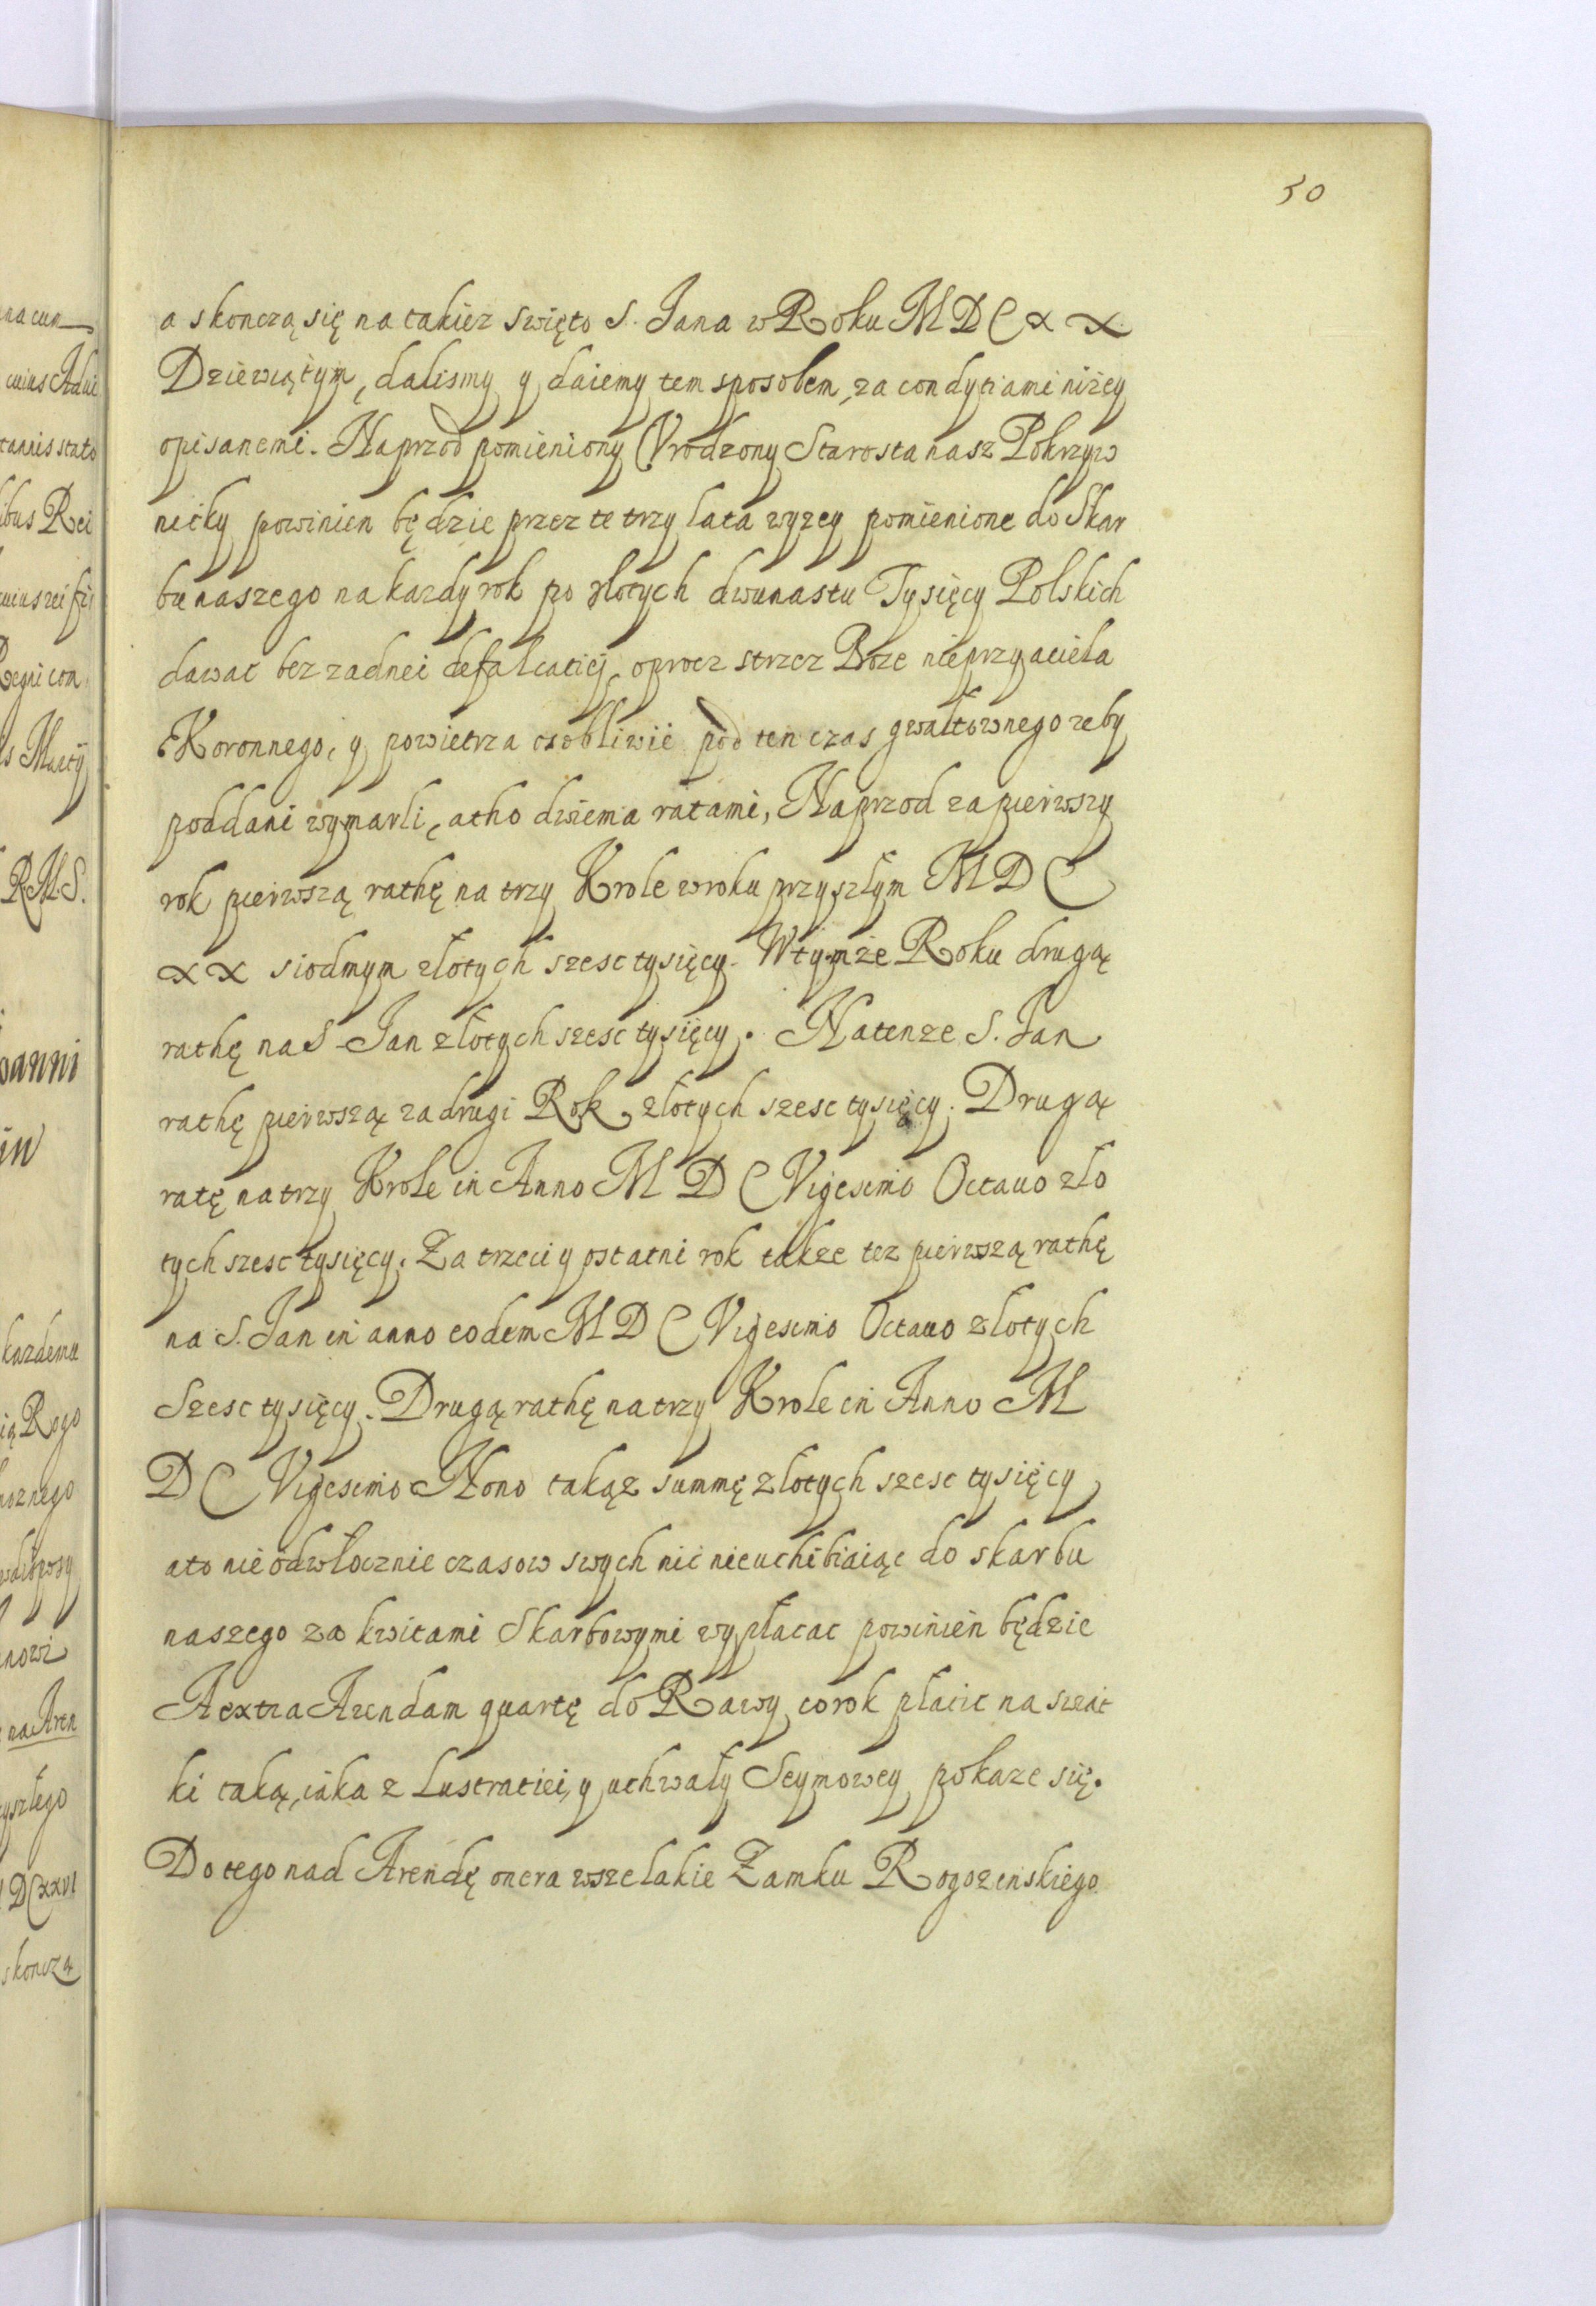 50
a skonczą się na takiez swięto S. Jana w Roku MDCXX
Dziewiątym, dalismy y daiemy tem sposobem, za condytiami niżey
opisanemi. Naprzod pomieniony Vrodzony Starosta nasz Pokrzyw
nicky powinien będzie przez te trzy lata wyzey pomienione do Skar
bu naszego na kazdy rok po złotych dwunastu Tysięcy Polskich
dawac bez zadnei defalcatiej, oprocz strzez Boze nieprzyaciela
Koronnego, y powietrza osobliwie pod ten czas gwałtownego zeby
poddani wymarli, atho dwiema ratami, Naprzod za pierwszy
rok pierwszą rathę na trzy Krole w roku przyszłym MDC
xx siodmym złotych szesc tysięcy. W tymże Roku drugą
rathę na S Jan złotych szesc tysięcy. Na tenze S. Jan
rathę pierwszą za drugi Rok złotych szesc tysięcy. Drugą
ratę na trzy Krole in Anno MDC Vigesimo Octauo zło
tych szesc tysięcy. Za trzeci y ostatni rok takze tez pierwszą rathę
na S. Jan in anno eodem MDC Vigesimo Octauo złotych
Szesc tysięcy. Drugą rathę na trzy Krole in Anno M
DC Vigesimo Nono takąz summę złotych szesc tysięcy
ato nieodwłocznie czasow swych nic nieuchibiaiąc do skarbu
naszego za kwitami Skarbowymi wypłacac powinien będzie
A extra Arendam quartę do Rawy co rok płacic na swiąt
ki taką, iaka z Lustratiei, y uchwały Seymowey pokaze się.
Do tego nad Arendę onera wszelakie Zamku Rogozenskiego